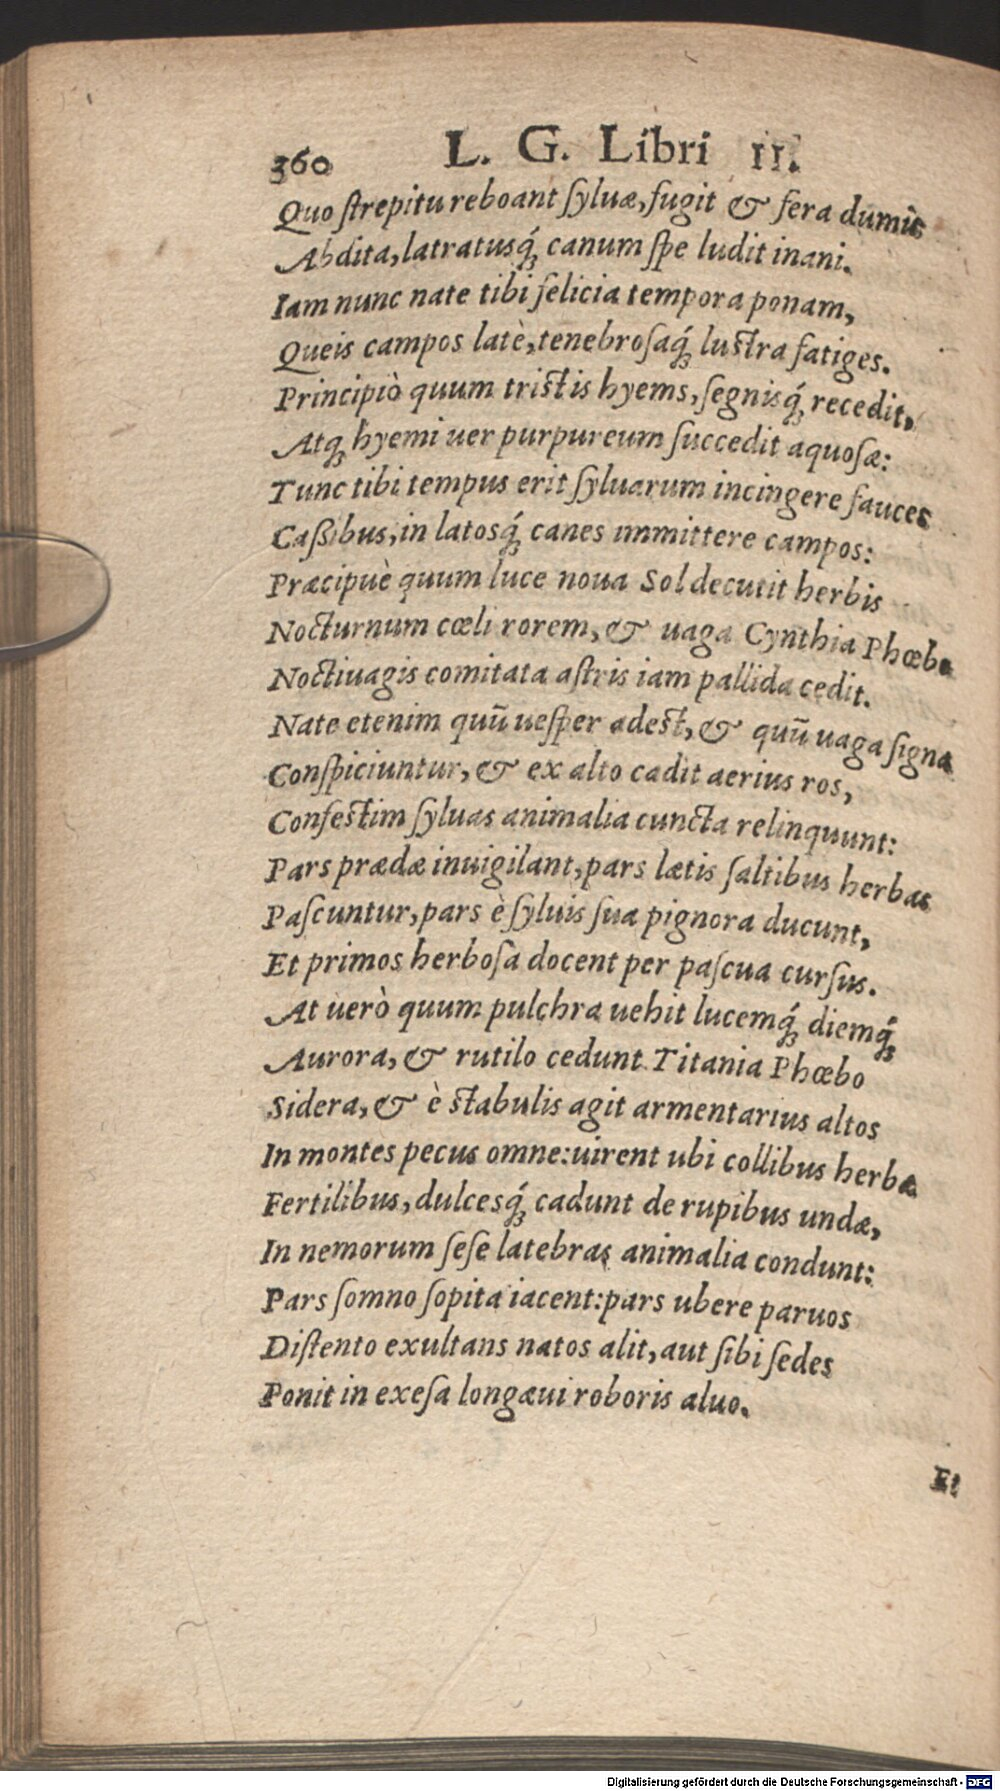 360 L. G. Libri II.
Quo ſtrepitu reboant ſyluæ, fugit & fera dumis
Abdita, latratusq́; canum ſpe ludit inani.
Iam nunc nate tibi felicia tempora ponam,
Queis campos latè, tenebroſaq́; luſtra fatiges.
Principiò quum triſtis hyems, ſegnisq́; recedit,
Atq; hyemi uer purpureum ſuccedit aquoſæ:
Tunc tibi tempus erit ſyluarum incingere fauces
Caßibus, in latosq́; canes immittere campos:
Præcipuè quum luce noua Sol decutit herbis
Nocturnum cœli rorem, & uaga Cynthia Phœbo
Noctiuagis comitata aſtris iam pallida cedit.
Nate etenim quū ueſper adeſt, & quū uaga ſigna
Conſpiciuntur, & ex alto cadit aerius ros,
Confeſtim ſyluas animalia cuncta relinquunt:
Pars prædæ inuigilant, pars lætis ſaltibus herbas
Paſcuntur, pars è ſyluis ſua pignora ducunt,
Et primos herboſa docent per paſcua curſus.
At uerò quum pulchra uehit lucemq́; diemq́;
Aurora, & rutilo cedunt Titania Phœbo
Sidera, & è ſtabulis agit armentarius altos
In montes pecus omne: uirent ubi collibus herbæ
Fertilibus, dulcesq́; cadunt de rupibus undæ,
In nemorum ſeſe latebras animalia condunt:
Pars ſomno ſopita iacent: pars ubere paruos
Diſtento exultans natos alit, aut ſibi ſedes
Ponit in exeſa longæui roboris aluo.
Et
Digitalisierung gefördert durch die Deutsche Forschungsgemeinschaft - DFG